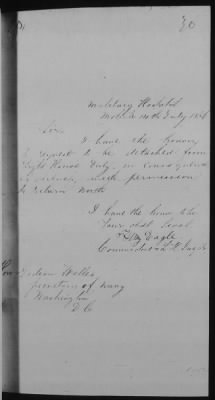 Military Hospital
Mobile 14th July 186
Sir
I have the honor
to request to be detached from
Light House Duty, in consequence
of sickness, with permission
to return North
I have the honor to be
Your obdt Servt
H. Eagle
Commodore U.S. Navy
Gideon Welles
Secretary of Navy
Washington
D C